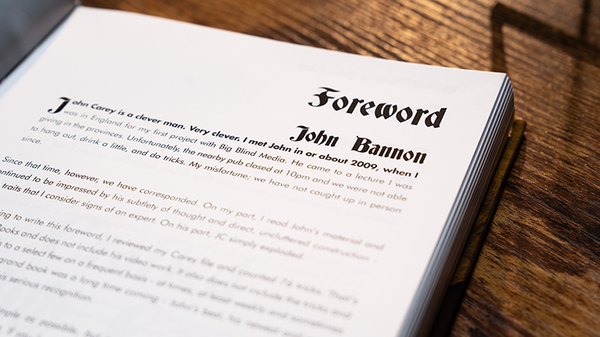 Foreword
John Bannon
John Carey is a clever man. Very clever. I met John in or about 2009, when I
was in England for my first project with Big Blind Media. He came to a lecture I was
giving in the provinces. Unfortunately, the nearby pub closed at 10pm and we were not able
to hang out, drink a little, and do tricks. My misfortune; we have not caught up in person
since.
Since that time, however, we have corresponded. On my part, I read John's material and
ntinued to be impressed by his subtlety of thought and direct, uncluttered construction -
traits that I consider signs of an expert. On his part, JC simply exploded.
ng to write this foreword, I reviewed my Carey file and counted 76 tricks. That's
ooks and does not include his video work. It also does not include the tricks and
s to a select few on a frequent basis - at times, at least weekly and sometimes
grand book was a long time coming - John's best, his
is serious recognition.
ple as possible, but